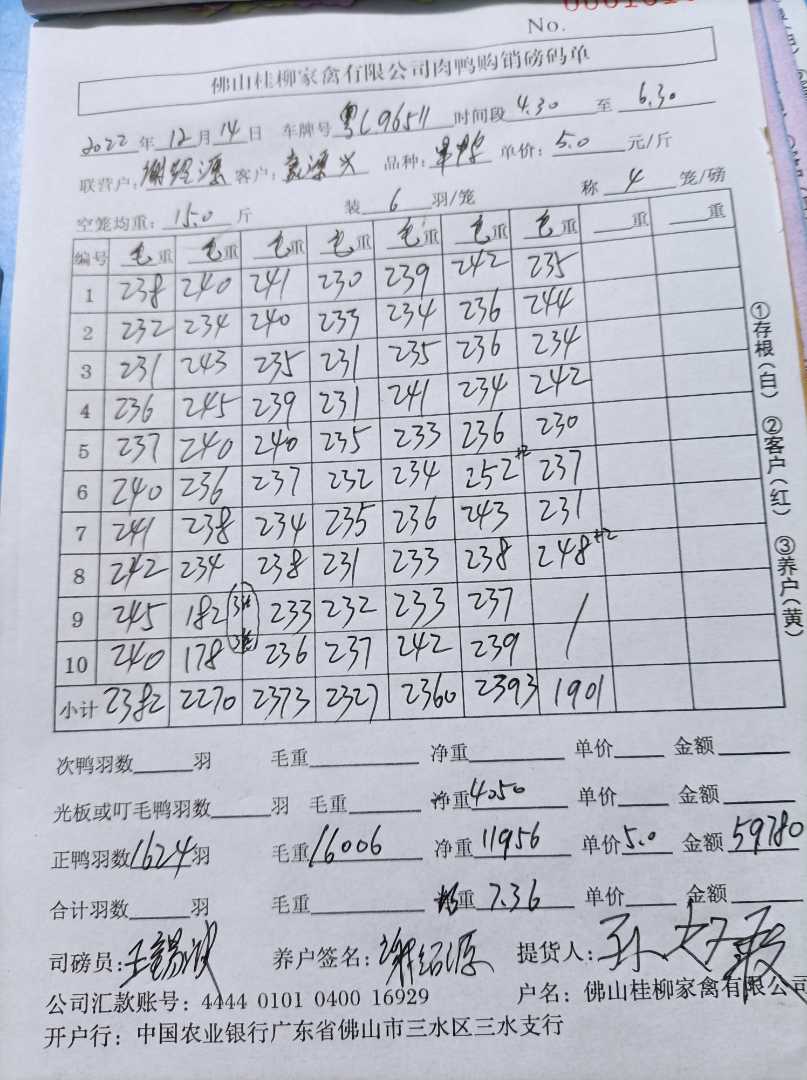 No.
佛山桂柳家禽有限公司肉鸭购销磅码单
2022年12月14日 车牌号 粤L96511 时间段 4.30 至 6.30
联营户: 谢绍源 客户: 品种: 单价: 5.0 元/斤
空笼均重: 15.0 斤 装 6 羽/笼 称 4 笼/磅
编号 毛重 毛重 毛重 毛重 毛重 毛重 毛重 重 重
1 238 240 241 230 239 242 235
2 232 234 240 233 234 236 244
3 231 243 235 231 235 236 234
4 236 245 239 231 241 234 242
5 237 240 240 235 233 236 230
6 240 236 237 232 234 252+2 237
7 241 238 234 235 236 243 231
8 242 234 238 231 233 238 248+2
9 245 182 233 232 233 237 /
10 240 178 236 237 242 239
小计 2382 2270 2373 2327 2360 2393 1901
①存根(白) ②客户(红) ③养户(黄)
次鸭羽数 羽 毛重 净重 单价 金额
光板或叮毛鸭羽数 羽 毛重 净重 4050 单价 金额
正鸭羽数 1624 羽 毛重 16006 净重 11956 单价 5.0 金额 59780
合计羽数 羽 毛重 重 7.36 单价 金额
司磅员: 养户签名: 谢绍源 提货人:
公司汇款账号: 4444 0101 0400 16929 户名: 佛山桂柳家禽有限公司
开户行: 中国农业银行广东省佛山市三水区三水支行